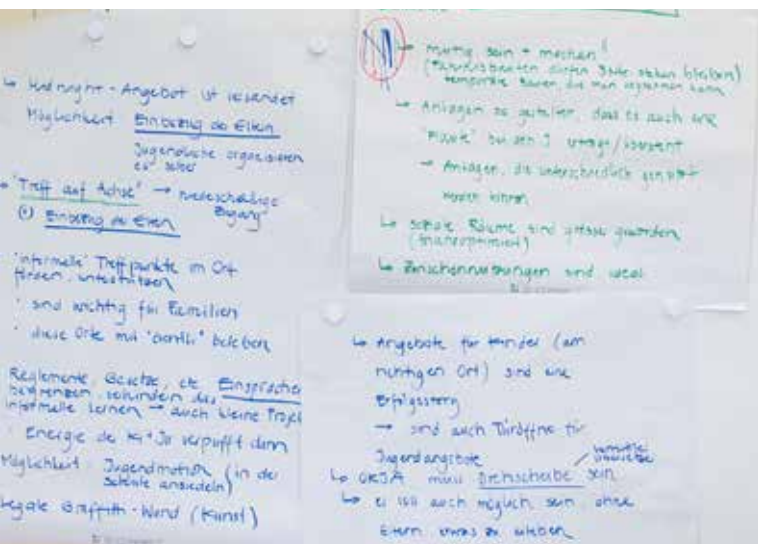 ↳ Midnight-Angebot ist
Möglichkeit: Einbezug der Eltern
Jugendliche organisieren
es selber
"Treff auf Achse" → niederschwellige
Zugang
Einbezug der Eltern
"informelle" Treffpunkte im Ort
fördern, unterstützen
· sind wichtig für Familien
· diese Orte mit beleben
Reglemente, Gesetze, etc. Einsprachen
begrenzen, verhindern das
informelle Lernen → auch kleine Projek
Energie der Ki + Ju verpufft dann
Möglichkeit: Jugendmotion (in der
Schule ansiedeln)
Legale Graffiti-Wand (Kunst)
↳ mutig sein + machen!
dürfen stehen bleiben)
temporäre Bauten, die man kann
↳ Anlagen so gestalten, dass es auch
bei den
→ Anlagen, die unterschiedlich genutzt
werden können
↳ soziale Räume sind grösser geworden
↳ Zwischennutzungen sind ideal
↳ Angebote für Kinder (am
richtigen Ort) sind eine
Erfolgsstory
→ sind auch Türöffner für
Jugendangebote
↳ OKJA muss Drehscheibe sein
↳ es soll auch möglich sein, ohne
Eltern etwas zu erleben